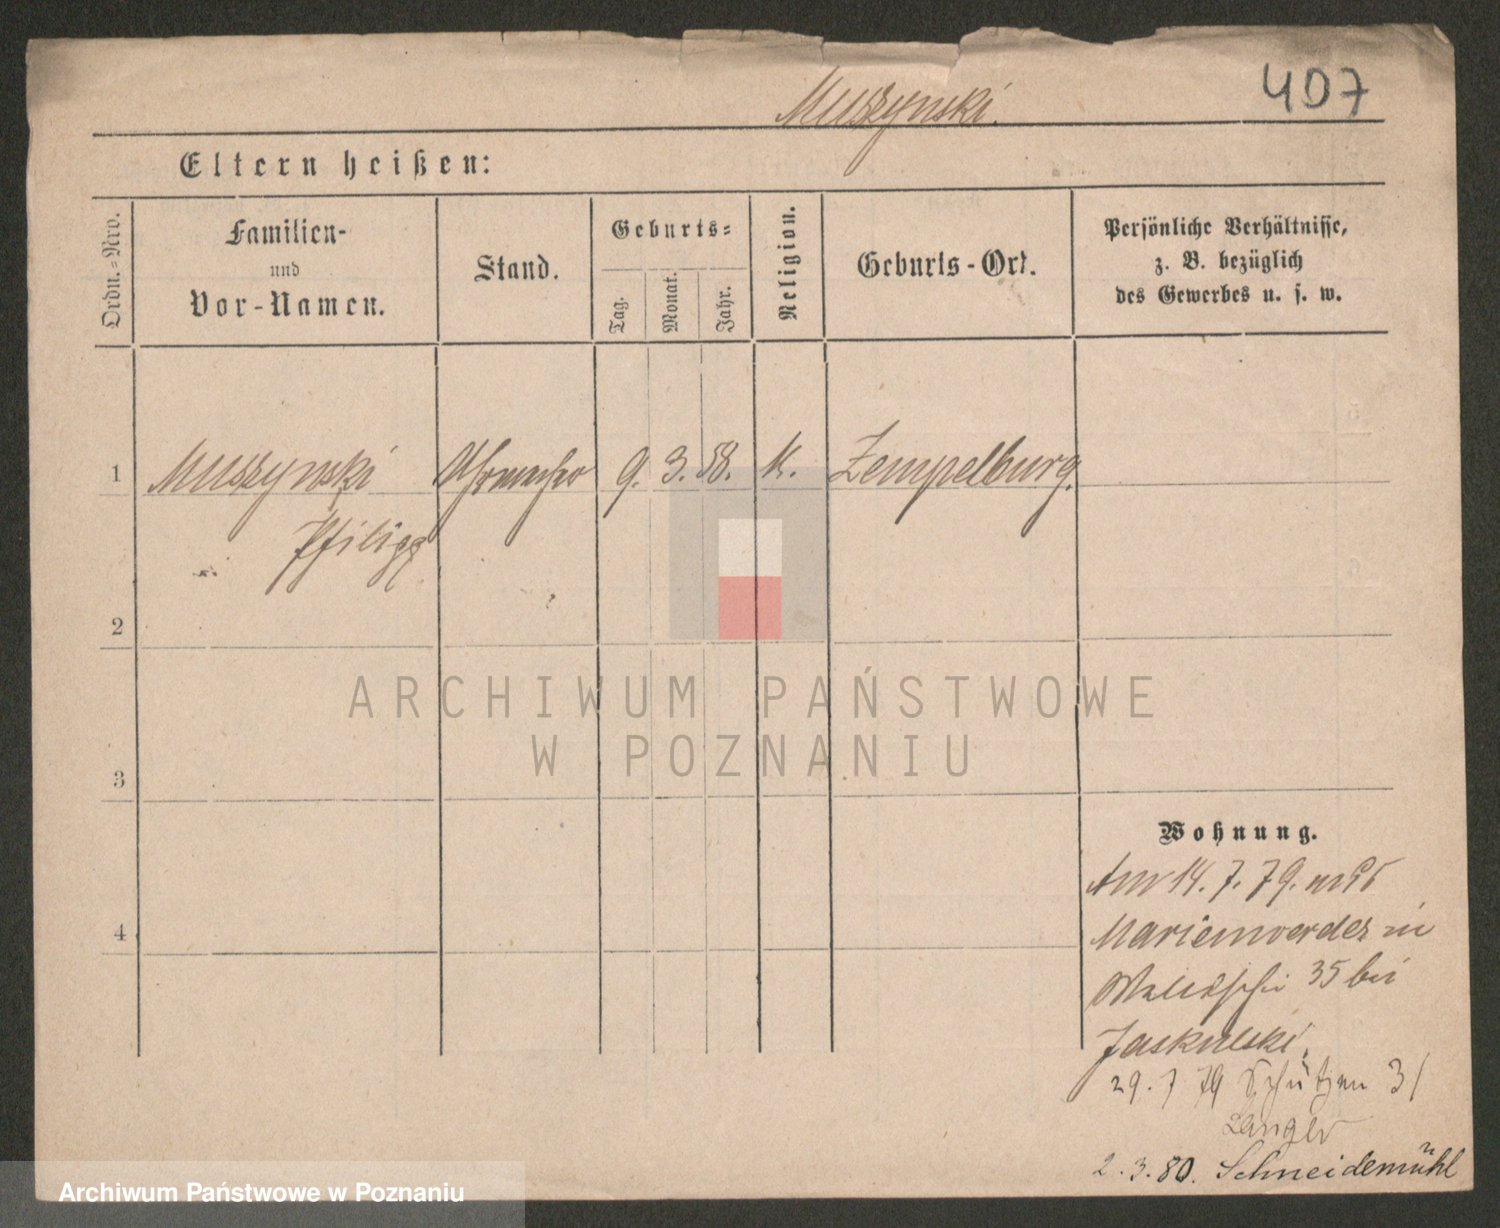 407
Muszynski.
Eltern heißen:
Ordn.=Nro.
Familien-
und
Vor-Namen.
Stand.
Geburts=
Tag.
Monat.
Jahr.
Religion.
Geburts-Ort.
Persönliche Verhältnisse,
z. B. bezüglich
des Gewerbes u. s. w.
1 Muszynski Uhrmacher 9. 3. 58. K. Zempelburg.
Philipp
2
3
4
Wohnung.
Am 14. 7. 79. aus
Marienwerder in
35 bei
Jaskulski.
29. 7 79 Schützen 31
Langer
2. 3. 80. Schneidemühl
ARCHIWUM PAŃSTWOWE
W POZNANIU
Archiwum Państwowe w Poznaniu